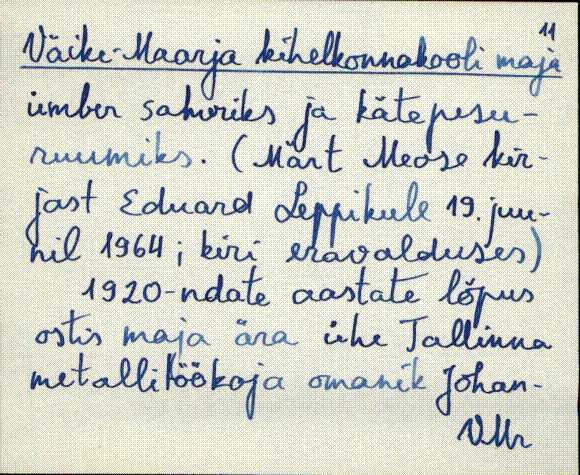 11
Väike-Maarja kihelkonnakooli maja
ümber sahvriks ja kätepesu-
ruumiks. (Märt Meose kir-
jast Eduard Leppikule 19. juu-
nil 1964; kiri eravalduses)
1920-ndate aastate lõpus
ostis maja ära ühe Tallinna
metallitöökoja omanik Johan-